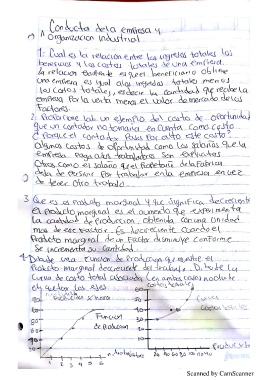 Conducta de la empresa y
Organizacion industrial
1. Cual es la relacion entre los ingresos totales los
beneficios y los costos totales de una empresa.
la relacion es que el beneficiario obtiene
una empresa es igual a los ingresos totales menos
los costos totales, es decir la cantidad que recibe la
empresa por la venta menos el valor de mercado de los
Factores.
2. Proporcione un ejemplo del costo de oportunidad
que un contador no tomaria en cuenta como costo
Algunos costos de oportunidad como los salarios que la
empresa paga a los trabajadores son explicitas
Otros como es salario que el Propietario de la Fabrica
deja de percibir Por trabajar en la empresa en vez
de tener Otro trabajo.
3 Que es el producto marginal y que significa decreciente
El producto marginal es el aumento que experimenta
la cantidad de Produccion, obtenida con una unidad
mas de ese Factor Es decreciente Cuando el
Producto marginal de un Factor disminuye conforme
Se incrementa su cantidad.
4. Dibuje una Funcion de Produccion que muestre el
Producto marginal decreciente del trabajo. Dibuje la
Curva de costo total asociada (en ambos casos
los ejes
Funcion
de Produccion
costos totales
Curva
costos totales
n. trabajadores
Scanned by CamScanner